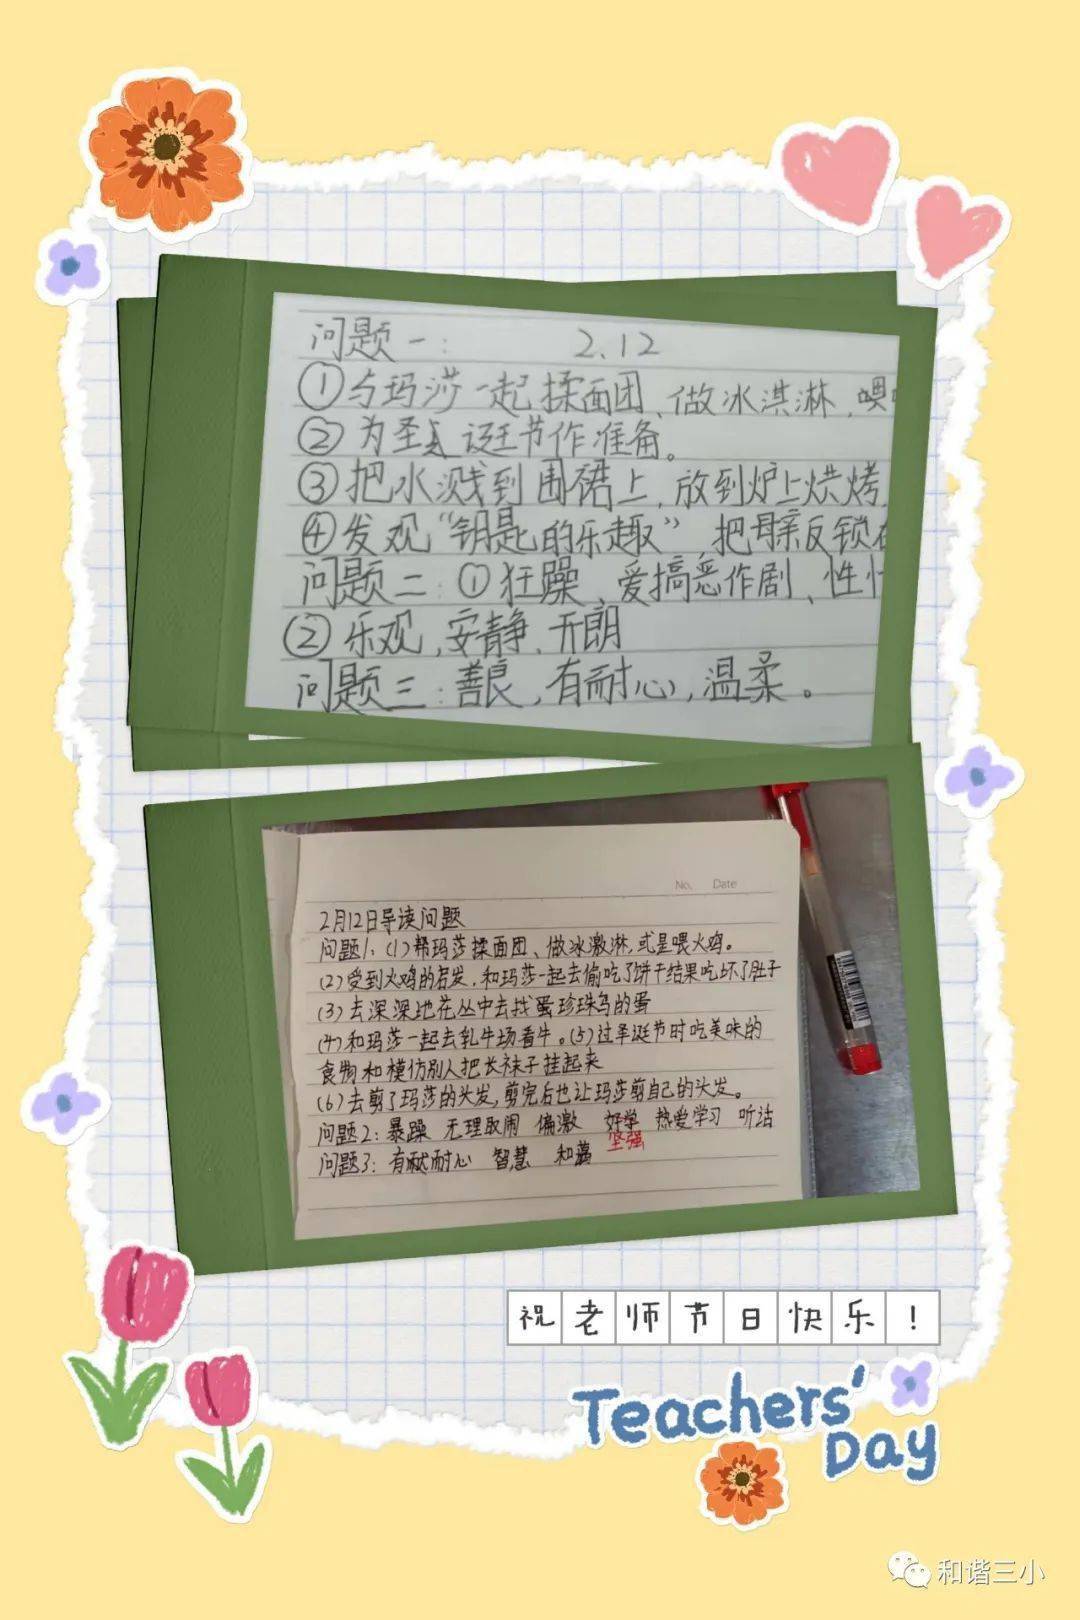 问题一： 2.12
①与玛莎一起揉面团、做冰淇淋，喂
②为圣诞节作准备。
③把水溅到围裙上，放到炉上烘烤
④发观“钥匙的乐趣”，把母亲反锁在
问题二：①狂躁、爱搞恶作剧、性
②乐观，安静、开朗
问题三：善良，有耐心，温柔。
No. Date
2月12日导读问题
问题1：(1)帮玛莎揉面团、做冰激淋，或是喂火鸡。
(2)受到火鸡的启发，和玛莎一起去偷吃了饼干结果吃坏了肚子
(3)去深深地花丛中去找蛋珍珠鸟的蛋
(4)和玛莎一起去乳牛场看牛。(5)过圣诞节时吃美味的
食物和模仿别人把长袜子挂起来
(6)去剪了玛莎的头发，剪完后也让玛莎剪自己的头发。
问题2：暴躁 无理取闹 偏激 好学 热爱学习 听话
坚强
问题3：有耐心 智慧 和蔼
祝老师节日快乐！
Teachers'
Day
和谐三小